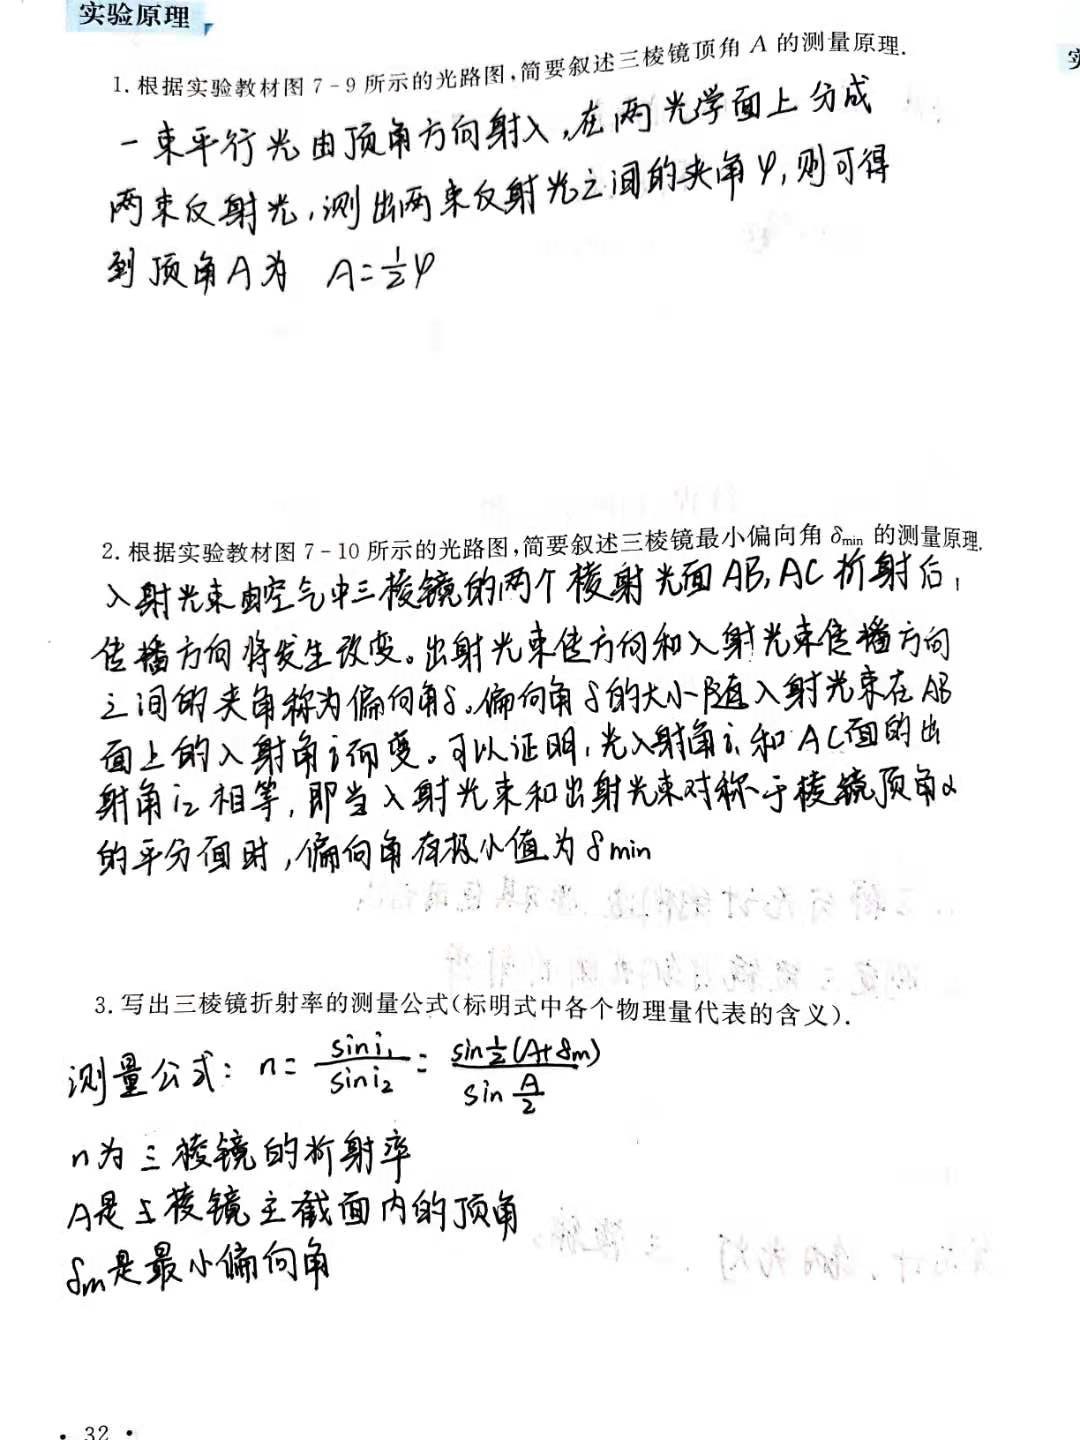 实验原理
1. 根据实验教材图 7-9 所示的光路图,简要叙述三棱镜顶角 A 的测量原理.
一束平行光由顶角方向射入,在两光学面上分成
两束反射光,测出两束反射光之间的夹角φ,则可得
到顶角A为 A=½φ
2. 根据实验教材图 7-10 所示的光路图,简要叙述三棱镜最小偏向角 δmin 的测量原理.
入射光束由空气中三棱镜的两个棱射光面AB,AC折射后,
传播方向将发生改变。出射光束传方向和入射光束传播方向
之间的夹角称为偏向角δ。偏向角δ的大小随入射光束在AB
面上的入射角i而变。可以证明,光入射角i₁和AC面的出
射角i₂相等,即当入射光束和出射光束对称于棱镜顶角α
的平分面时,偏向角有极小值为δmin
3. 写出三棱镜折射率的测量公式(标明式中各个物理量代表的含义).
测量公式: n= sini₁/sini₂ = sin½(A+δm)/sin A/2
n为三棱镜的折射率
A是三棱镜主截面内的顶角
δm是最小偏向角
· 32 ·